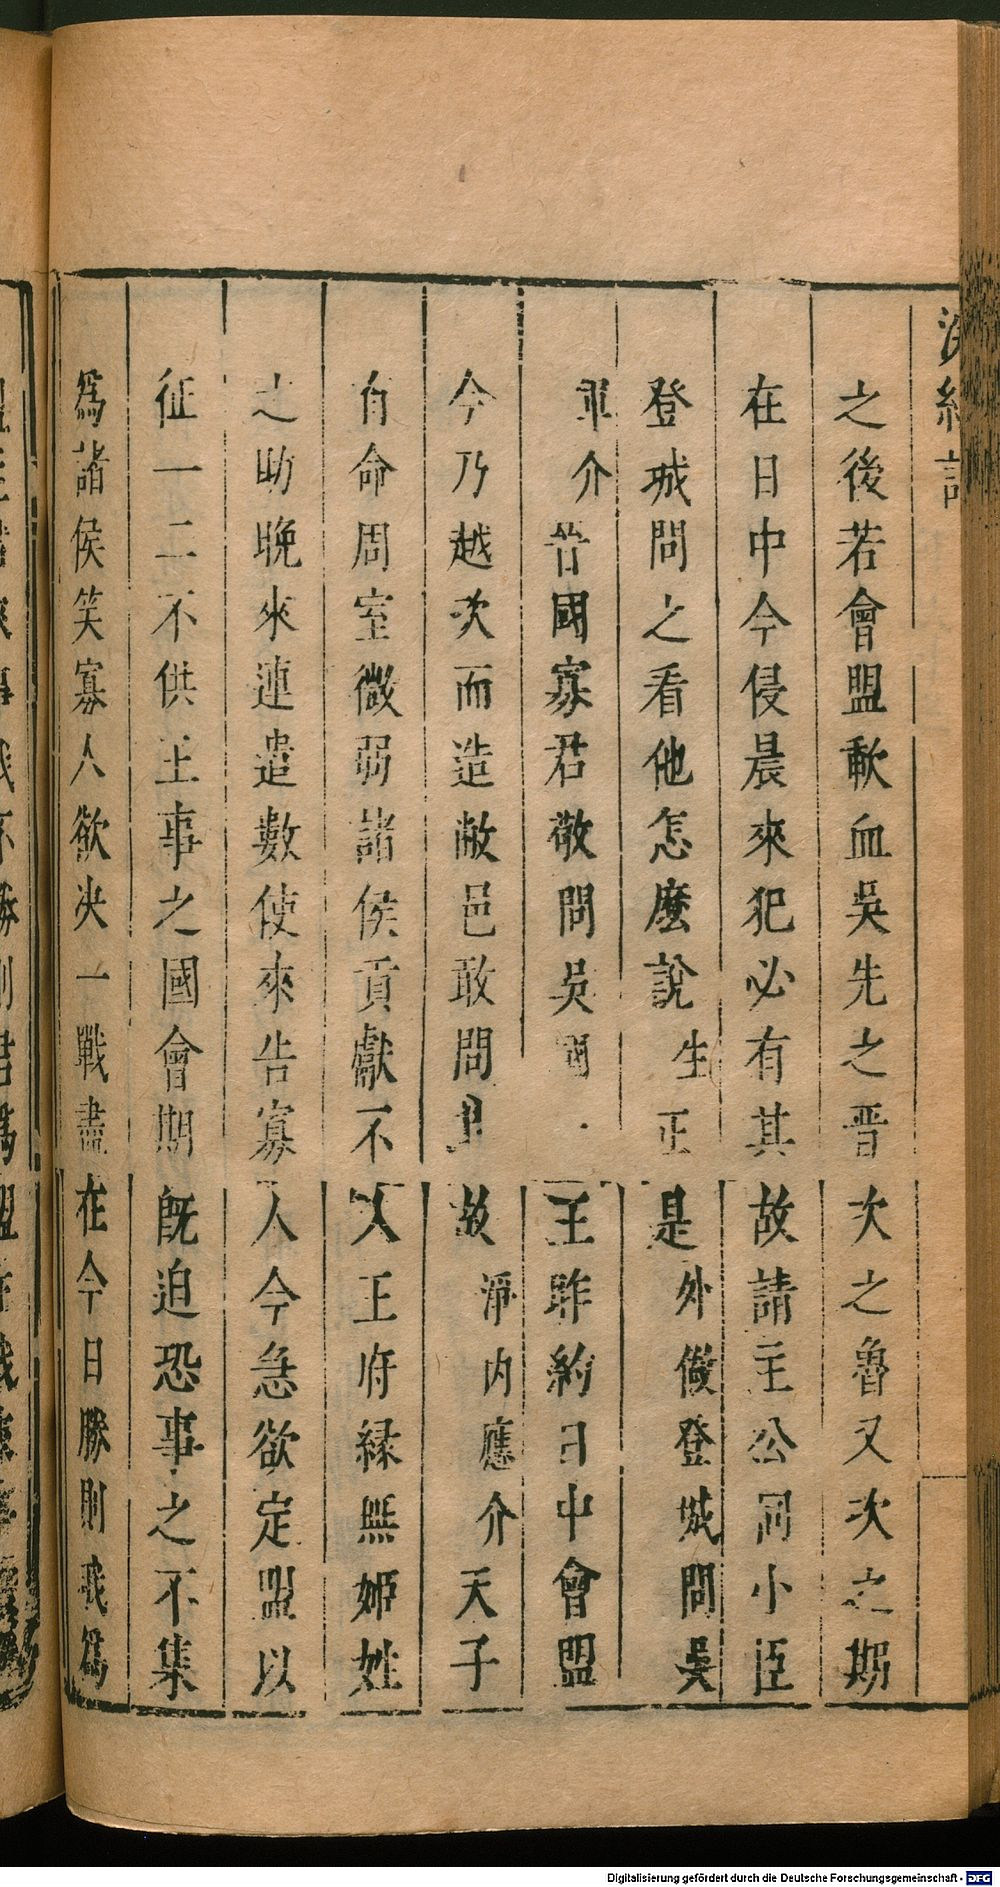 浣紗記
之後若會盟歃血吳先之晋次之魯又次之期
在日中今侵晨來犯必有其故請主公同小臣
登城問之看他怎麽說生正是外做登城問吳
軍介晋國寡君敬問吳國王昨約日中會盟
今乃越次而造敝邑敢問其故淨內應介天子
有命周室微弱諸侯貢獻不入王府縁無姬姓
之助晚來連遣數使來告寡人今急欲定盟以
征一二不供王事之國會期旣迫恐事之不集
爲諸侯笑寡人欲决一戰盡在今日勝則我爲
Digitalisierung gefördert durch die Deutsche Forschungsgemeinschaft - DFG